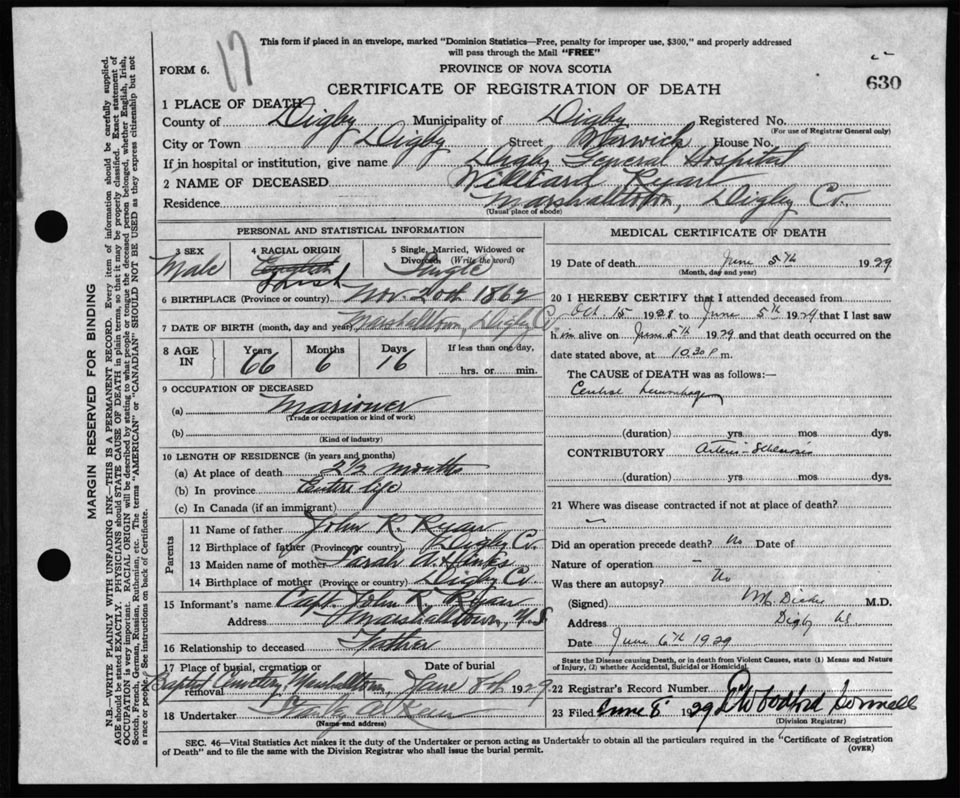 17
This form if placed in an envelope, marked "Dominion Statistics—Free, penalty for improper use, $300," and properly addressed
will pass through the Mail "FREE"
FORM 6.
PROVINCE OF NOVA SCOTIA
630
CERTIFICATE OF REGISTRATION OF DEATH
1 PLACE OF DEATH
County of Digby Municipality of Digby Registered No.
(For use of Registrar General only)
City or Town Digby Street Warwick House No.
If in hospital or institution, give name Digby General Hospital
2 NAME OF DECEASED Williard Ryan
Residence Marshalltown, Digby Co.
(Usual place of abode)
PERSONAL AND STATISTICAL INFORMATION
3 SEX
Male
4 RACIAL ORIGIN
English
Irish
5 Single, Married, Widowed or
Divorced. (Write the word)
Single
6 BIRTHPLACE (Province or country) Nov. 20th 1862
7 DATE OF BIRTH (month, day and year) Marshalltown, Digby Co
8 AGE IN
Years Months Days If less than one day,
66 6 16 hrs. or min.
9 OCCUPATION OF DECEASED
(a) Mariower
(Trade or occupation or kind of work)
(b)
(Kind of industry)
10 LENGTH OF RESIDENCE (in years and months)
(a) At place of death 2½ months
(b) In province Entire life
(c) In Canada (if an immigrant)
Parents
11 Name of father John R. Ryan
12 Birthplace of father (Province or country) Digby Co.
13 Maiden name of mother Sarah A.
14 Birthplace of mother (Province or country) Digby Co.
15 Informant's name Capt. John R. Ryan
Address Marshalltown, N.S
16 Relationship to deceased Father
17 Place of burial, cremation or removal Date of burial
Baptist Cemetery Marshalltown, June 8th 1929
18 Undertaker
(Name and address)
MEDICAL CERTIFICATE OF DEATH
19 Date of death June 5th 1929
(Month, day and year)
20 I HEREBY CERTIFY that I attended deceased from
Oct. 15 1928 to June 5th 1929 that I last saw
him alive on June 5th 1929 and that death occurred on the
date stated above, at 10.30 P. m.
The CAUSE of DEATH was as follows:—
hemorrhage
(duration) yrs mos dys.
CONTRIBUTORY
(duration) yrs. mos dys.
21 Where was disease contracted if not at place of death?
Did an operation precede death? No Date of
Nature of operation —
Was there an autopsy? No
(Signed) M.D.
Address Digby
Date June 6th 1929
State the Disease causing Death, or in death from Violent Causes, state (1) Means and Nature
of Injury, (2) whether Accidental, Suicidal or Homicidal.
22 Registrar's Record Number
23 Filed June 8 1929
(Division Registrar)
SEC. 46—Vital Statistics Act makes it the duty of the Undertaker or person acting as Undertaker to obtain all the particulars required in the "Certificate of Registration
of Death" and to file the same with the Division Registrar who shall issue the burial permit.
(OVER)
MARGIN RESERVED FOR BINDING
N.B.—WRITE PLAINLY WITH UNFADING INK—THIS IS A PERMANENT RECORD. Every item of information should be carefully supplied.
AGE should be stated EXACTLY. PHYSICIANS should STATE CAUSE OF DEATH in plain terms, so that it may be properly classified. Exact statement of
OCCUPATION is very important. RACIAL ORIGIN will be described by stating to what people or tongue the deceased person belonged, whether English, Irish,
Scotch, French, German, Russian, Ruthenian, etc. The terms "AMERICAN" or "CANADIAN" SHOULD NOT BE USED as they express citizenship but not
a race or people. See instructions on back of Certificate.